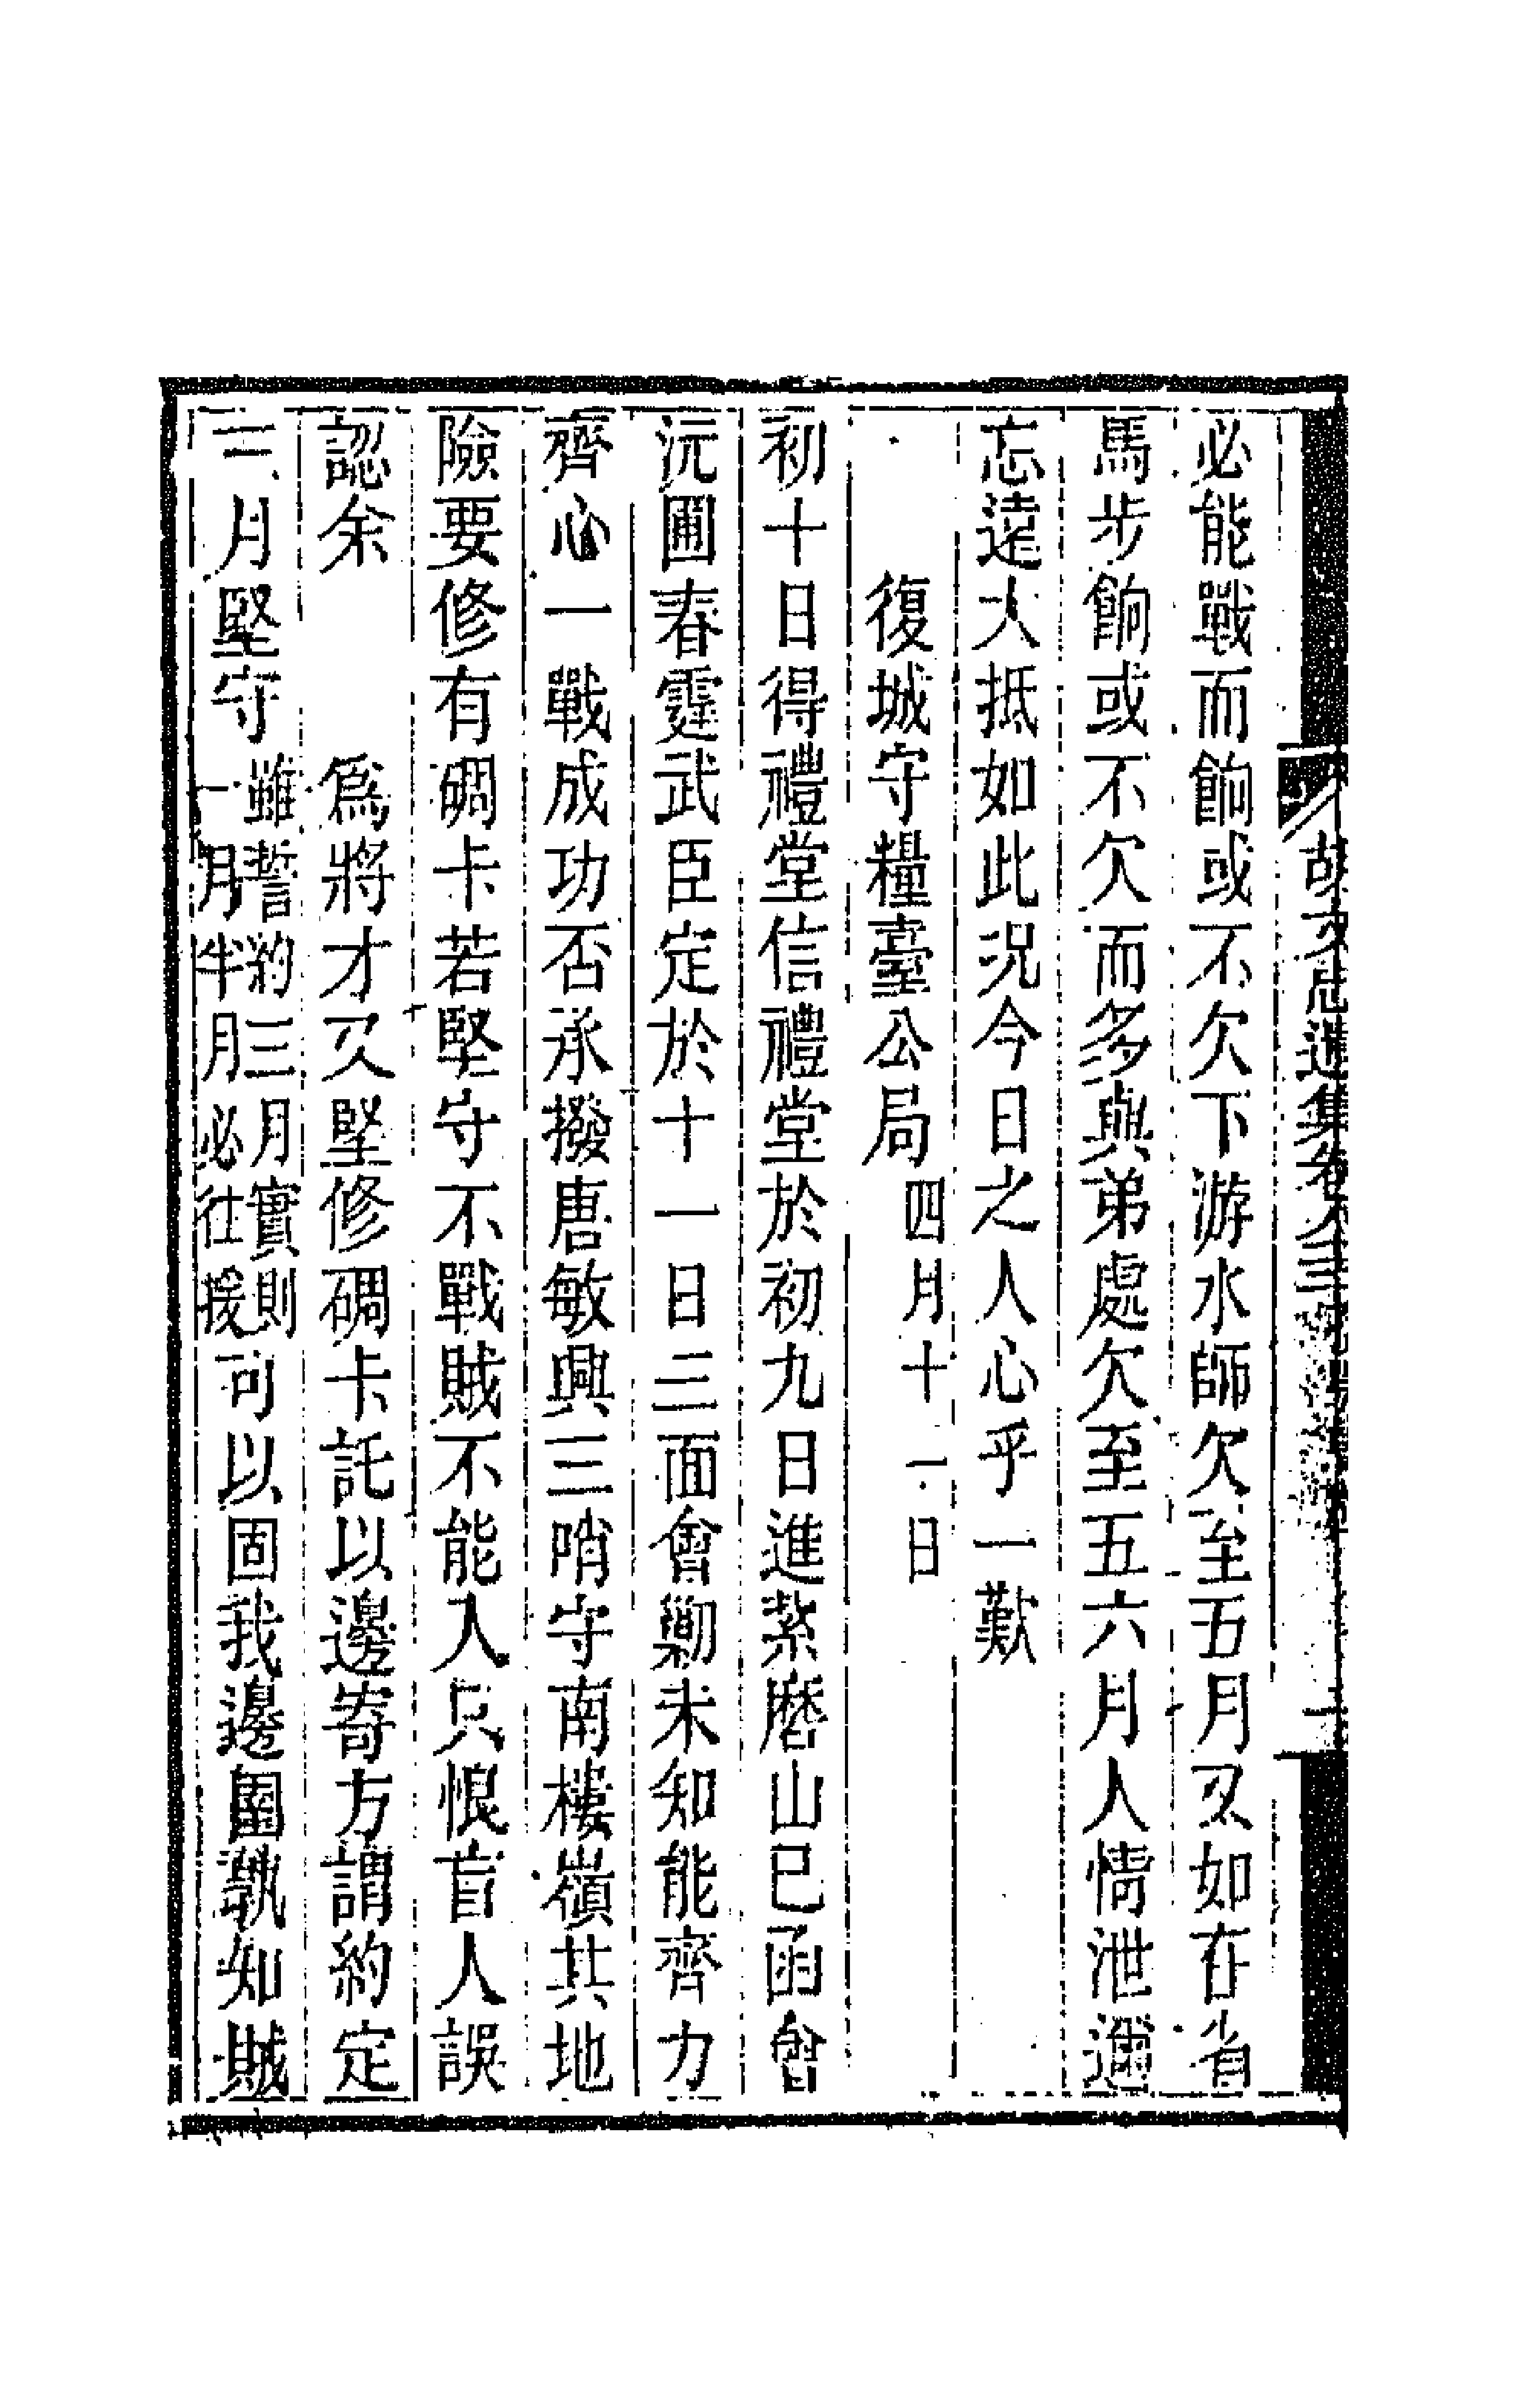 必能戰而餉或不欠下游水師欠至五月又如在省
馬步餉或不欠而多與弟處欠至五六月人情泄邇
忘遠大抵如此況今日之人心乎一歎
復城守糧臺公局四月十一日
初十日得禮堂信禮堂於初九日進紮磨山已函會
沅圃春霆武臣定於十一日三面會勦未知能齊力
齊心一戰成功否承撥唐敏興三哨守南樓嶺其地
險要修有碉卡若堅守不戰賊不能入只恨盲人誤
認余　　為將才又堅修碉卡託以邊寄方謂約定
三月堅守雖誓約三月實則一月半月必往援可以固我邊圉孰知賊